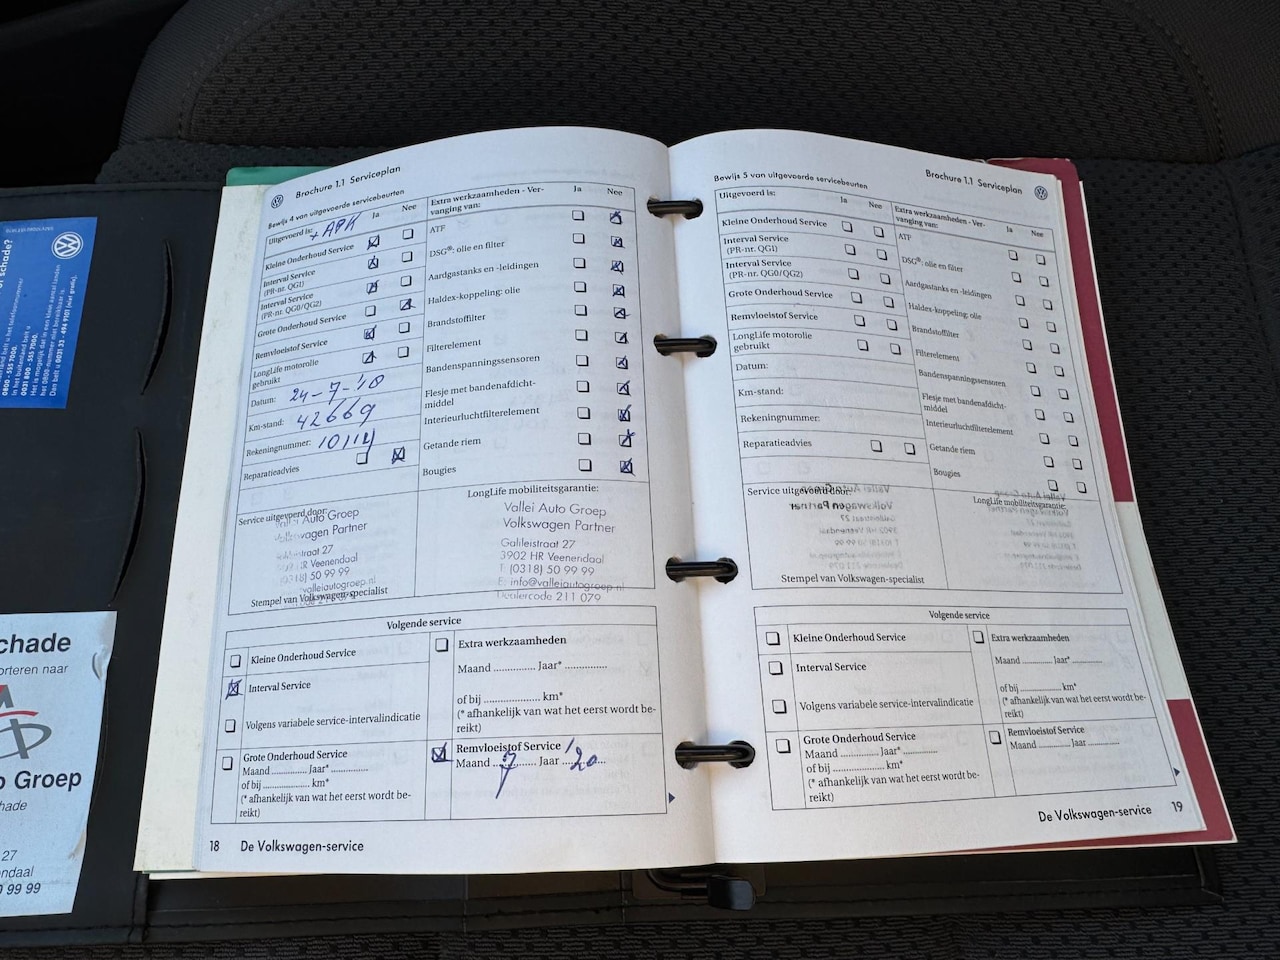 Brochure 1.1 Serviceplan
Bewijs 4 van uitgevoerde servicebeurten
Uitgevoerd is: Ja Nee
+ APK
Kleine Onderhoud Service
Interval Service
(PR-nr. QG1)
Interval Service
(PR-nr. QG0/QG2)
Grote Onderhoud Service
Remvloeistof Service
LongLife motorolie
gebruikt
Datum: 24-7-'18
Km-stand: 42669
Rekeningnummer:
Reparatieadvies
Extra werkzaamheden - Ver-
vanging van: Ja Nee
ATF
DSG®: olie en filter
Aardgastanks en -leidingen
Haldex-koppeling: olie
Brandstoffilter
Filterelement
Bandenspanningssensoren
Flesje met bandenafdicht-
middel
Interieurluchtfilterelement
Getande riem
Bougies
Service uitgevoerd door:
Auto Groep
Volkswagen Partner
Galileistraat 27
HR Veenendaal
(0318) 50 99 99
valleiautogroep.nl
Stempel van Volkswagen-specialist
LongLife mobiliteitsgarantie:
Vallei Auto Groep
Volkswagen Partner
Galileistraat 27
3902 HR Veenendaal
T: (0318) 50 99 99
E: info@valleiautogroep.nl
Dealercode 211 079
Volgende service
Kleine Onderhoud Service
Interval Service
Volgens variabele service-intervalindicatie
Grote Onderhoud Service
Maand .............. Jaar* ...............
of bij .................... km*
(* afhankelijk van wat het eerst wordt be-
reikt)
Extra werkzaamheden
Maand .............. Jaar* ...............
of bij .................... km*
(* afhankelijk van wat het eerst wordt be-
reikt)
Remvloeistof Service
Maand 7 Jaar '20
18 De Volkswagen-service
Brochure 1.1 Serviceplan
Bewijs 5 van uitgevoerde servicebeurten
Uitgevoerd is: Ja Nee
Kleine Onderhoud Service
Interval Service
(PR-nr. QG1)
Interval Service
(PR-nr. QG0/QG2)
Grote Onderhoud Service
Remvloeistof Service
LongLife motorolie
gebruikt
Datum:
Km-stand:
Rekeningnummer:
Reparatieadvies
Extra werkzaamheden - Ver-
vanging van: Ja Nee
ATF
DSG®: olie en filter
Aardgastanks en -leidingen
Haldex-koppeling: olie
Brandstoffilter
Filterelement
Bandenspanningssensoren
Flesje met bandenafdicht-
middel
Interieurluchtfilterelement
Getande riem
Bougies
Service uitgevoerd door:
Stempel van Volkswagen-specialist
LongLife mobiliteitsgarantie:
Volgende service
Kleine Onderhoud Service
Interval Service
Volgens variabele service-intervalindicatie
Grote Onderhoud Service
Maand .............. Jaar* ...............
of bij .................... km*
(* afhankelijk van wat het eerst wordt be-
reikt)
Extra werkzaamheden
Maand .............. Jaar* ...............
of bij .................... km*
(* afhankelijk van wat het eerst wordt be-
reikt)
Remvloeistof Service
Maand .............. Jaar ...............
De Volkswagen-service 19
schade?
0800 - 555 7000.
0031 33 - 494 9101 (niet gratis).
chade
orteren naar
o Groep
hade
27
endaal
99 99